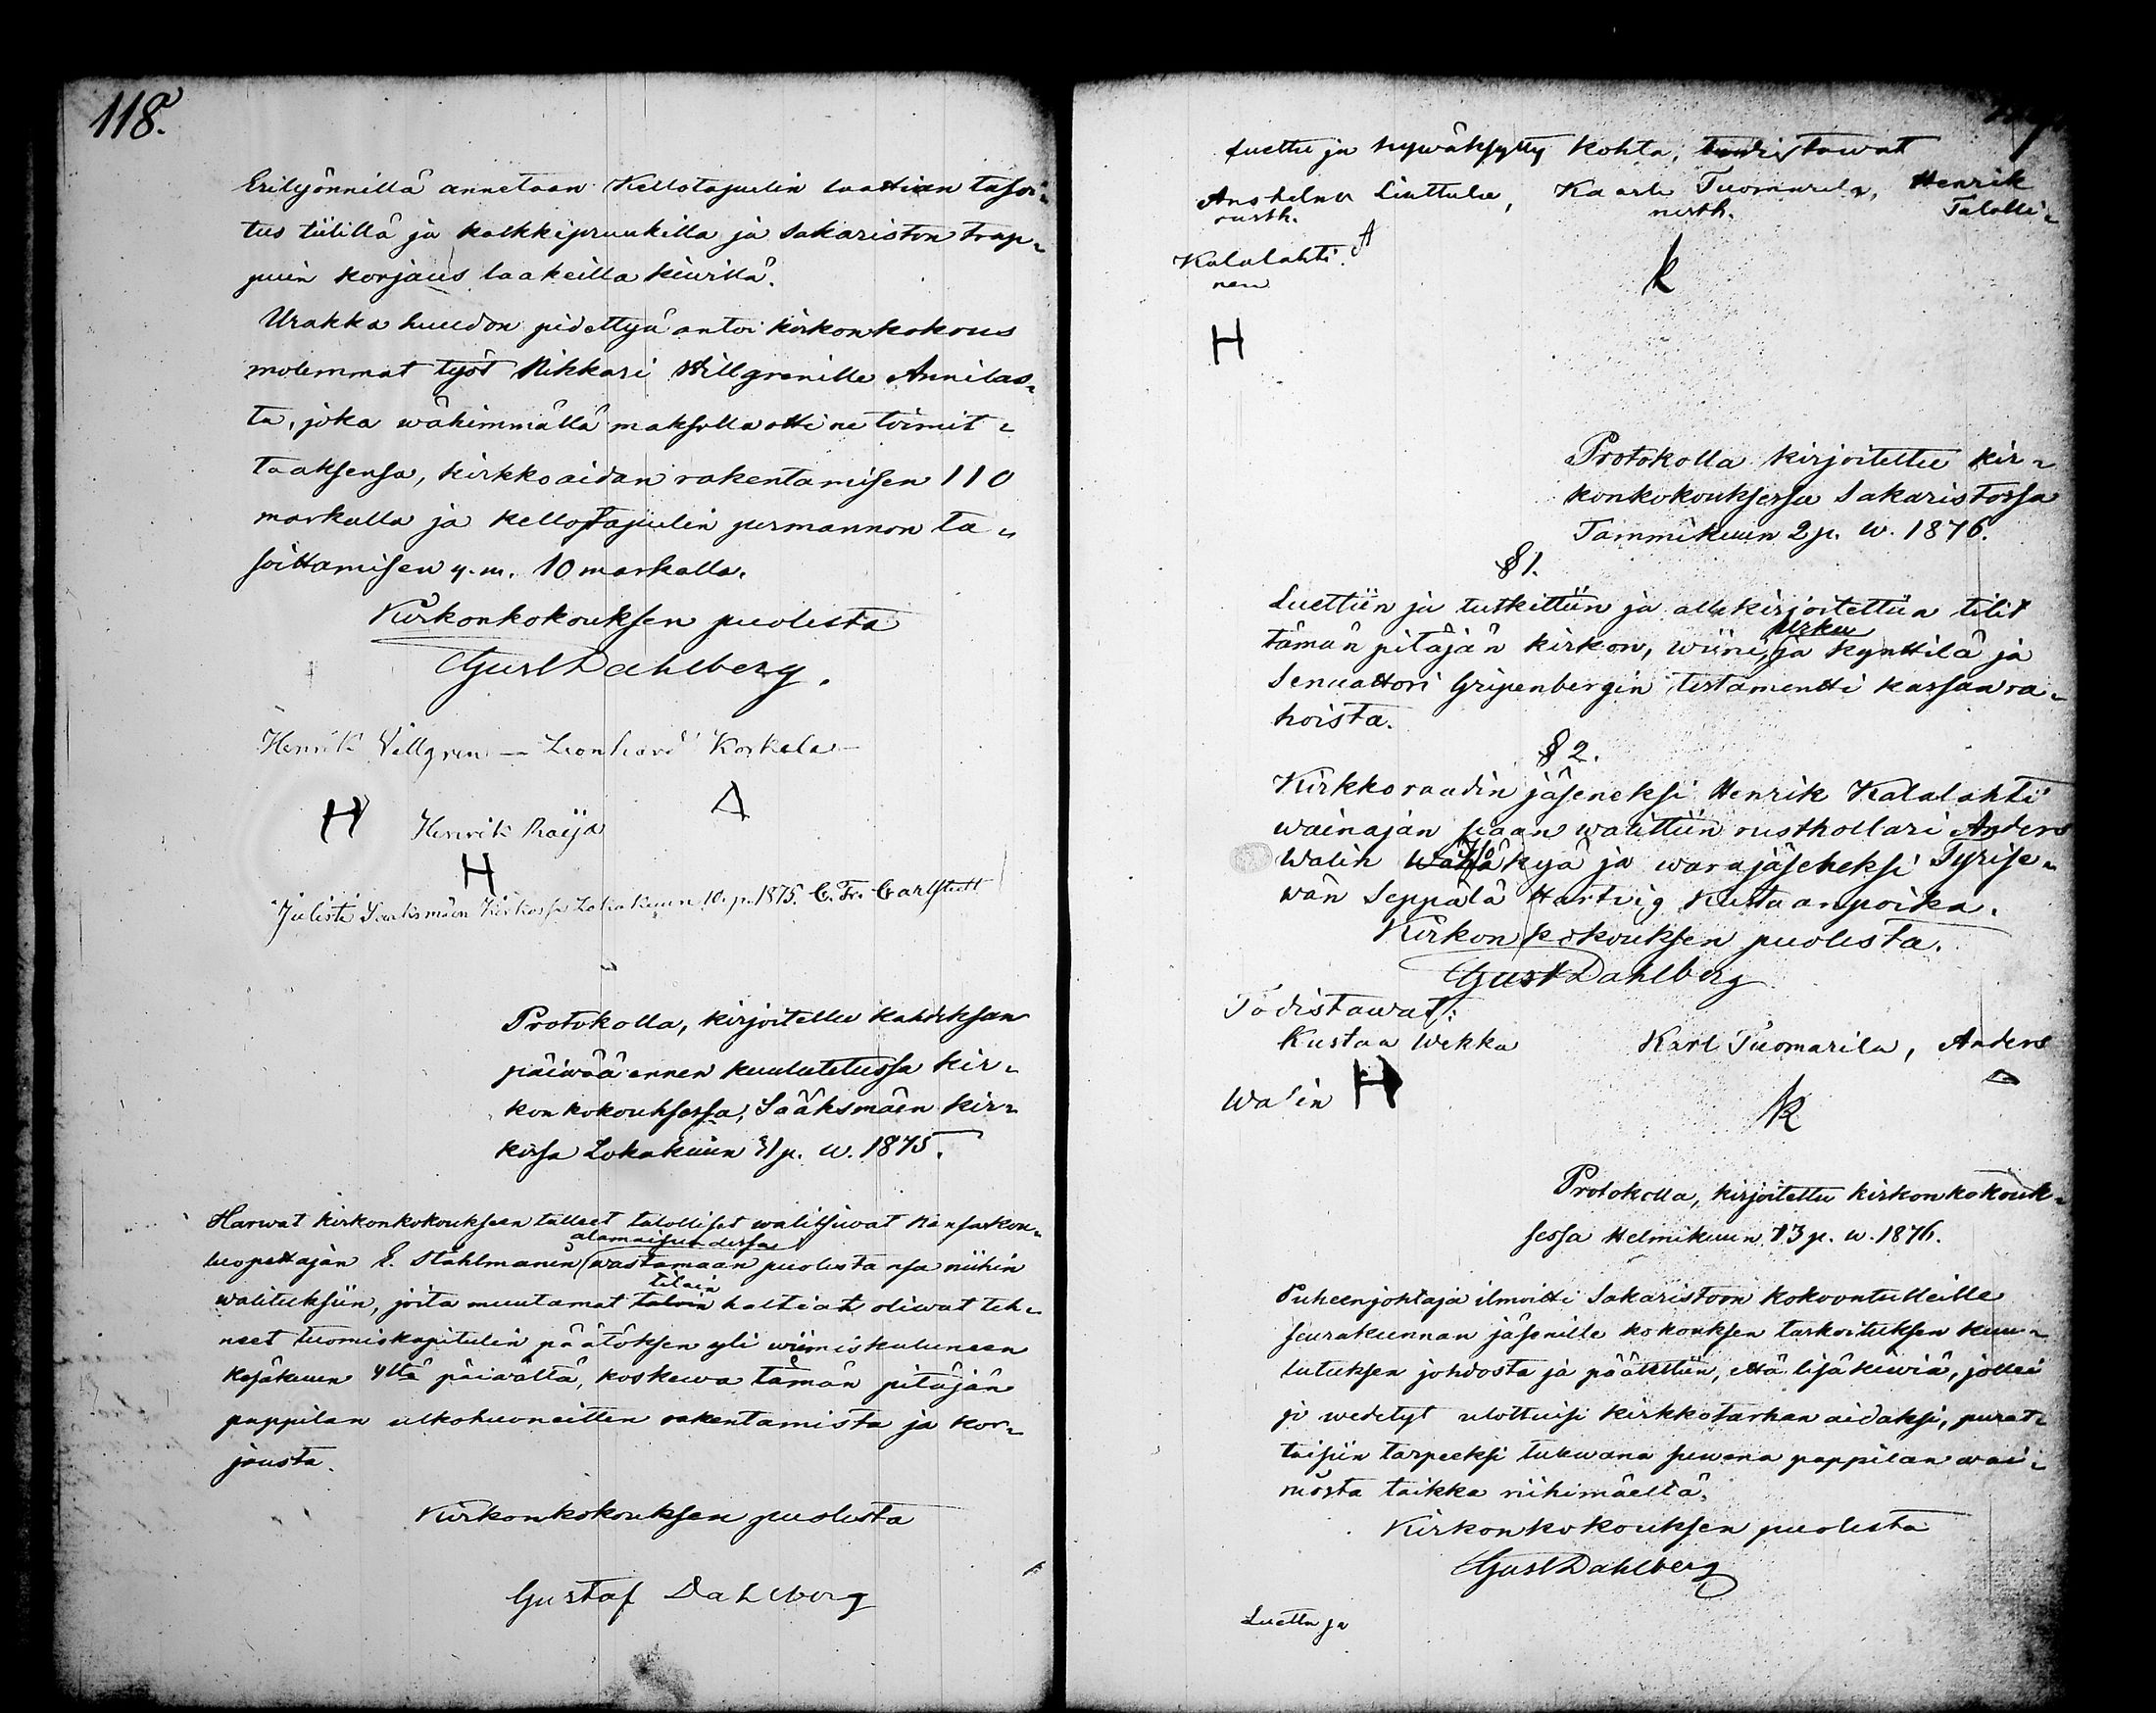 118.
Erityönnillä annetaan Kellotapulin laattian tasoi-
tus tiilillä ja kalkkipruukilla ja Sakariston trap-
puin korjaus laakeilla kiwillä.
Urakka huudon pidettyä antoi kirkonkokous
molemmat työt Nikkari Willgrenille Annilas-
ta, joka wähimmällä maksolla otti ne toimit-
taaksensa, kirkkoaidan rakentamisen 110
markalla ja kellotapulin permannon ta-
soittamisen y.m. 10 markalla.
Kirkonkokouksen puolesta
Gust Dahlberg.
Henrik Villgren — Leonhard Korkala
H Henrik Raija
H
Julisti Sääksmäen Kirkossa Lokakuun 10. p. 1875. C. Fr. Carlstedt
Protokolla, kirjoitettu kahdeksan
päiwää ennen kuulutetussa kir-
konkokouksessa, Sääksmäen kir-
kossa Lokakuun 31 p. w. 1875.
Harwat kirkonkokoukseen tulleet talolliset walitsiwat kansakou-
luopettajan E. Ståhlmanin alamaisuudessa wastamaan puolestansa niihin
walituksiin, joita muutamat taloin tilain haltiat oliwat teh-
neet tuomiokapitulin päätöksen yli wiimiskuluneen
Kesäkuun 4ltä päiwältä, koskewa tämän pitäjän
pappilan ulkohuoneitten rakentamista ja kor-
jausta.
Kirkonkokouksen puolesta
Gustaf Dahlberg
Luettu ja hywäksytty kohta, todistawat
Anshelm Liuttula, Kaarle Tuomarila, Henrik
rusth. rusth. Talolli-
Kalalahti.
nen
K
H
Protokolla kirjoitettu kir-
konkokouksessa Sakaristossa
Tammikuun 2 p. w. 1876.
§ 1.
Luettiin ja tutkittiin ja allekirjoitettiin tilit
tämän pitäjän kirkon, wiini, Urku ja kynttilä ja
Senaattori Gripenbergin testamentti kassan ra-
hoista.
§ 2.
Kirkkoraadin jäseneksi Henrik Kalalahti
wainajan siaan walittiin rusthollari Anders
Walin kyä ja warajäseneksi Tyrise-
wän Seppälä Hartvig Kustaanpoika.
Kirkonkokouksen puolesta.
Gust Dahlberg
Todistawat:
Kustaa Wekka Karl Tuomarila, Anders
Walin H
K
Protokolla, kirjoitettu kirkonkokouk-
sessa Helmikuun 13 p. w. 1876.
Puheenjohtaja ilmoitti Sakaristoon kokoontulleille
seurakunnan jäsenille kokouksen tarkoituksen kuu-
lutuksen johdosta ja päätettiin, että lisäkiwiä, jollei
jo wedetyt ulottuisi kirkkotarhan aidaksi, puret-
taisiin tarpeeksi tulewana suwena pappilan
taikka riihimäeltä.
Kirkonkokouksen puolesta
Gust Dahlberg
Luettu ja